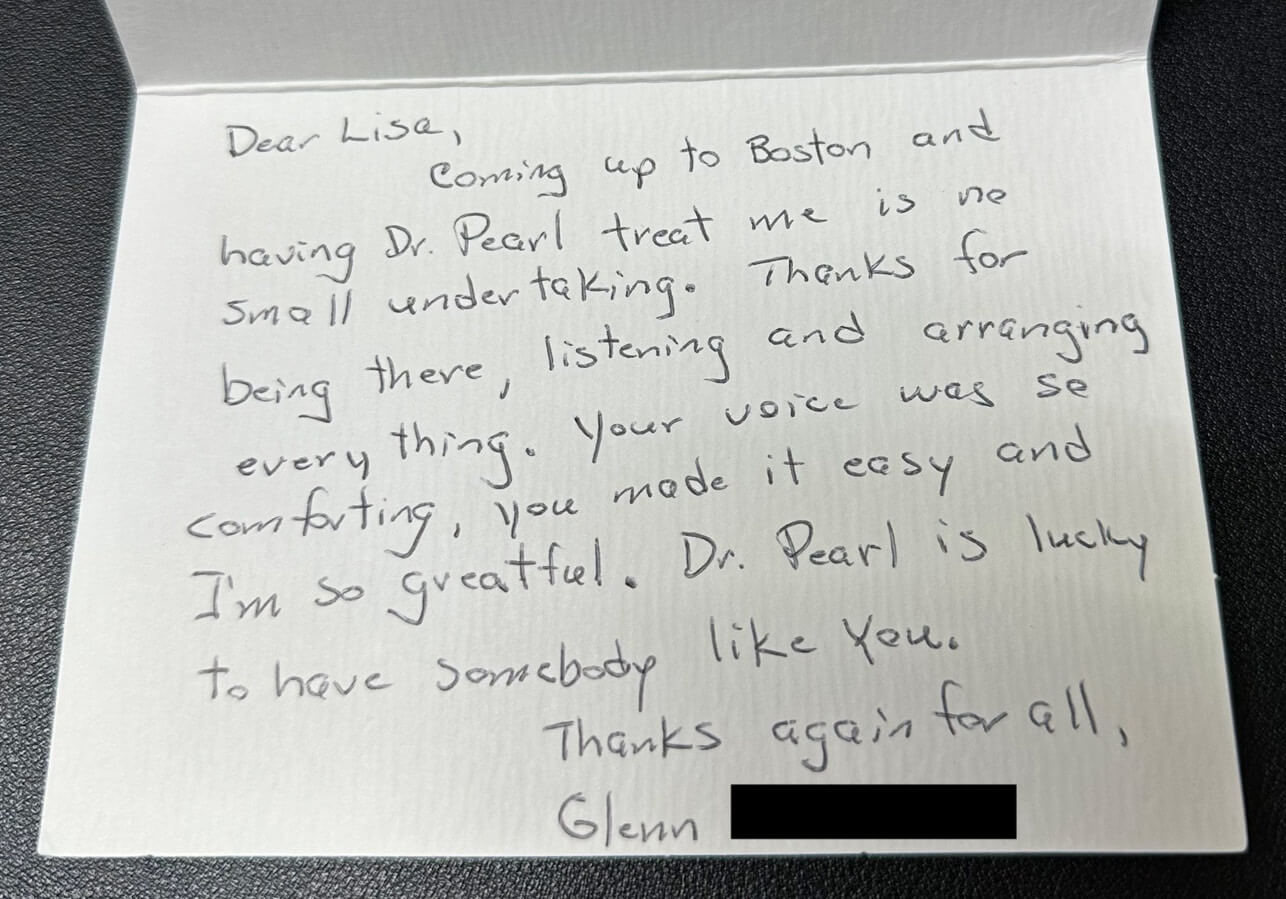 Dear Lisa,
Coming up to Boston and
having Dr. Pearl treat me is no
small undertaking. Thanks for
being there, listening and arranging
every thing. Your voice was so
comforting, you made it easy and
I'm so greatful. Dr. Pearl is lucky
to have somebody like you.
Thanks again for all,
Glenn